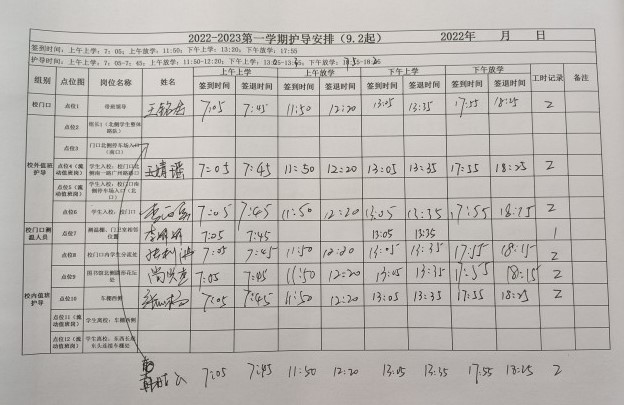 2022-2023第一学期护导安排（9.2起） 2022年 月 日
签到时间：上午上学：7：05；上午放学：11:50；下午上学：13:20；下午放学：17:55
护导时间：上午上学：7：05-7：45；上午放学：11:50-12:20；下午上学：
组别 点位图 岗位名称 姓名 上午上学 上午放学 下午上学 下午放学 工时记录 备注
签到时间 签退时间 签到时间 签退时间 签到时间 签退时间 签到时间 签退时间
校门口 点位1 带班领导 7:05 7:45 11:50 12:20 13:05 13:35 17:55 18:25 2
点位2
点位3 门口北侧停车场入口（南口）
校外值班护导 点位4（流动值班岗） 学生入校：校门口北侧南一路广州路路口 7:05 7:45 11:50 12:20 13:05 13:35 17:55 18:25 2
点位5（流动值班岗） 学生入校：校门口南侧停车场入口（北口）
点位6 学生入校：校门口 7:05 7:45 11:50 12:20 13:05 13:35 17:55 2
校门口测温人员 点位7 7:05 7:45 13:05 13:35 1
点位8 校门口内学生分流处 7:05 7:45 11:50 12:20 13:05 13:35 17:55 2
校内值班护导 点位9 7:05 7:45 11:50 12:20 13:05 13:35 17:55 2
点位10 车棚西侧 7:05 7:45 11:50 12:20 13:05 13:35 17:55 18:25 2
点位11（流动值班岗） 学生离校：车棚西侧
点位12（流动值班岗） 学生离校：东西长廊东头连接车棚处
7:05 7:45 11:50 12:20 13:05 13:35 17:55 18:25 2